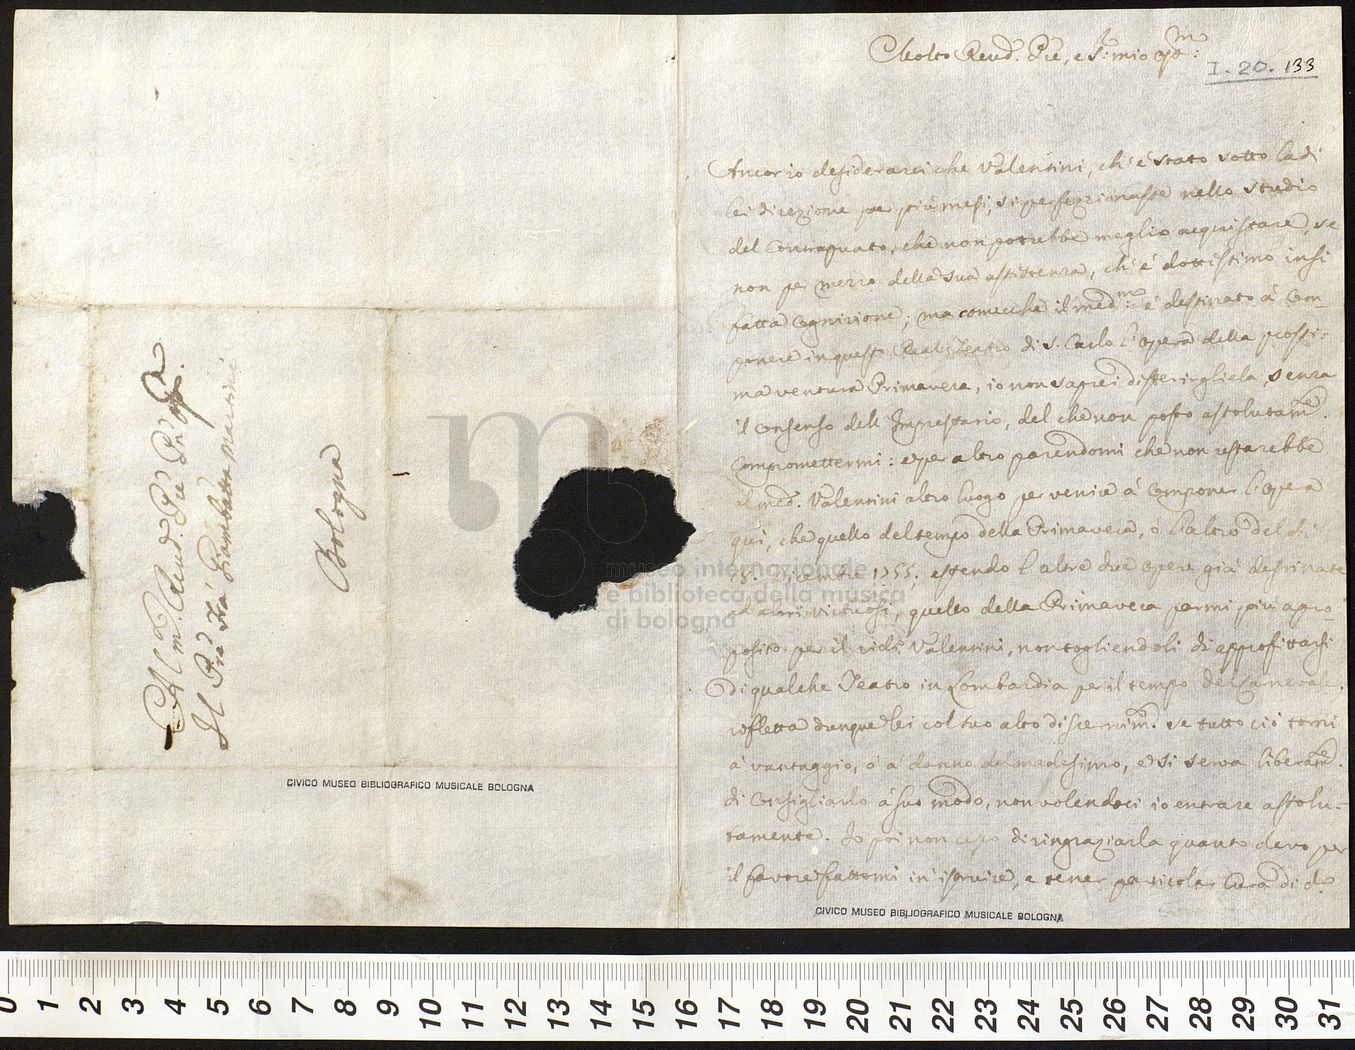 Al m. Revd. Pre Pre Sigr.
Il Pre Fra Giambatta Martini
Bologna
CIVICO MUSEO BIBLIOGRAFICO MUSICALE BOLOGNA
museo internazionale
e biblioteca della musica
di bologna
Molto Revd. Pre, e Sr. mio
I. 20. 133
Ancor io desiderarei che Valentini, ch'è stato sotto la di
lei direzione per più mesi, si perfezzionasse nello studio
del Contrapunto, che non potrebbe meglio acquistare, se
non per mezzo della sua assistenza, ch'è dottissimo in si
fatta Cognizione; ma comecche il medmo: è destinato à Com-
ponere in questo Real Teatro di S. Carlo l'opera della prossi-
ma ventura Primavera, io non saprei differirgliela, senza
il Consenso dell'Impressario, del che non posso assolutamte.
Compromettermi: e per altro parendomi che non restarebbe
al med. Valentini altro luogo per venire à Componer l'opera
qui, che quello del tempo della Primavera, o l'altro del di
Dicembre 1755. essendo l'altre due opere già destinate
ad altri virtuosi, quello della Primavera parmi più apro-
posito per il ridº Valentini, non togliendoli di approfittarsi
di qualche Teatro in Lombardia per il tempo del Carnevale.
rifletta dunque lei col suo alto discernimto. se tutto ciò torni
à vantaggio, ò à danno del medesimo, e si serva liberamte.
di Consigliarlo à suo modo, non volendoci io entrare assolu-
tamente. Io poi non cesso di ringraziarla quanto devo per
il favore fattomi in, e tener particolar Cura di do
CIVICO MUSEO BIBLIOGRAFICO MUSICALE BOLOGNA
0 1 2 3 4 5 6 7 8 9 10 11 12 13 14 15 16 17 18 19 20 21 22 23 24 25 26 27 28 29 30 31